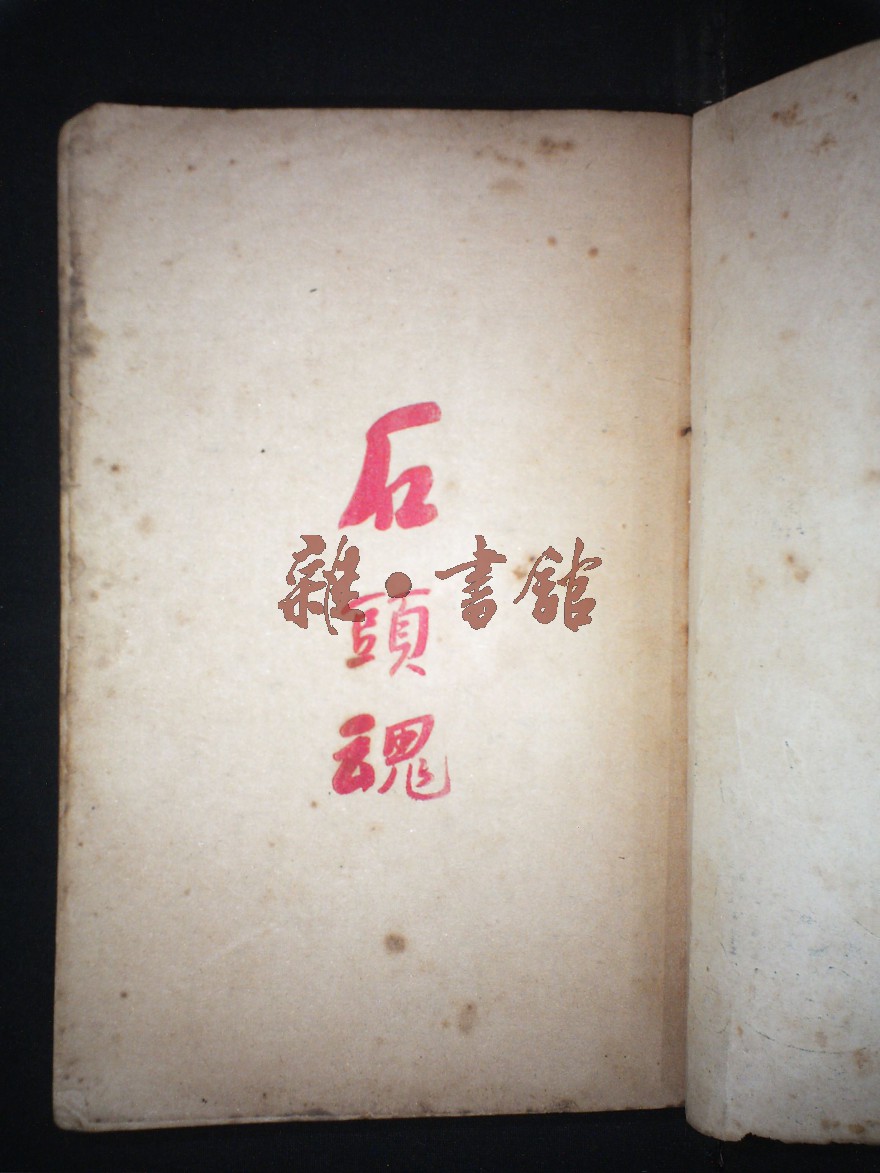 石頭魂
雜·書館